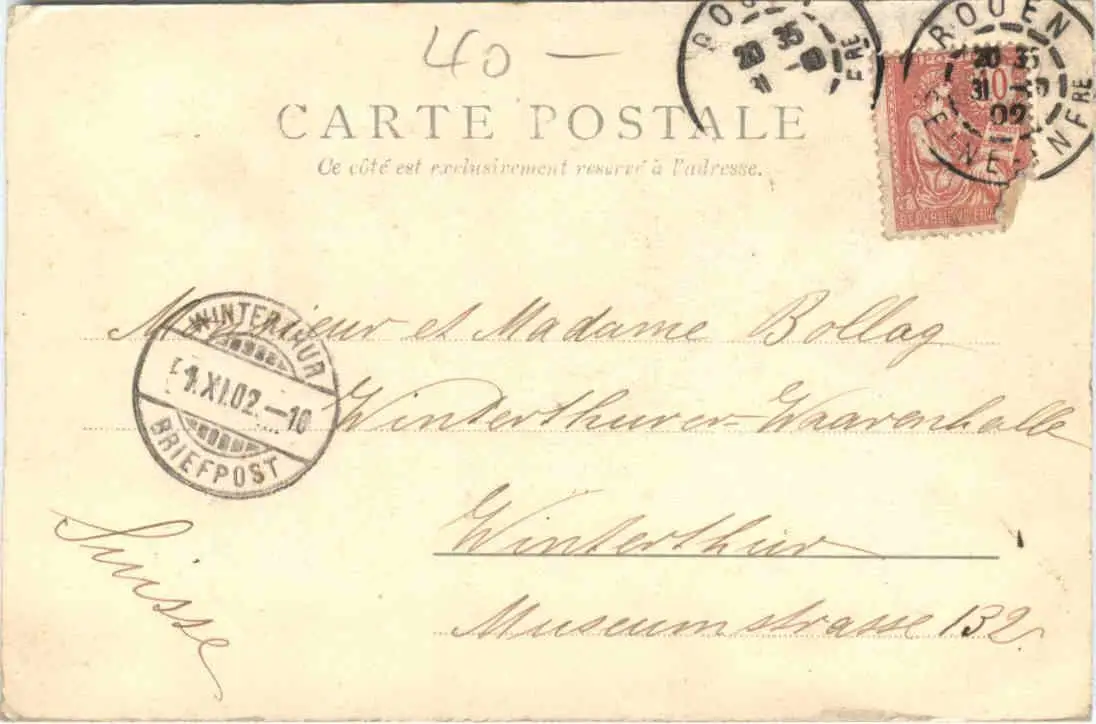 40 —
ROUEN
20 35
31
ROUEN
20 35
31
02
10
CARTE POSTALE
Ce côté est exclusivement reservé à l'adresse.
Monsieur et Madame Bollag
WINTERTHUR
1.XI.02.–10
BRIEFPOST
Winterthurer-Waarenhalle
Winterthur
Suisse
Museumstrasse 132